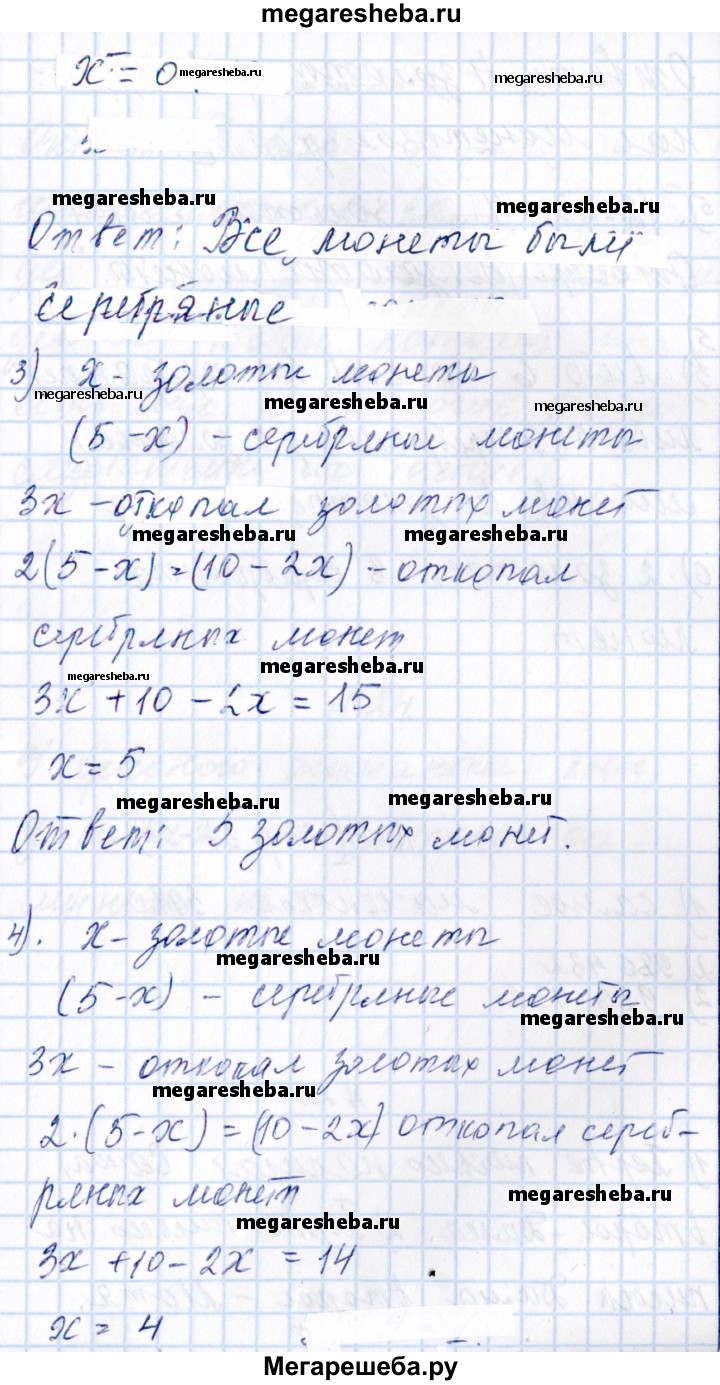 megaresheba.ru
x = 0
megaresheba.ru
megaresheba.ru
megaresheba.ru
megaresheba.ru
Ответ: Все монеты были
серебряные
3) x - золотые монеты
megaresheba.ru
megaresheba.ru
megaresheba.ru
(5-x) - серебряные монеты
3x - откопал золотых монет
megaresheba.ru
megaresheba.ru
2(5-x)=(10-2x) - откопал
серебряных монет
megaresheba.ru
megaresheba.ru
3x+10-2x=15
x=5
megaresheba.ru
megaresheba.ru
Ответ: 5 золотых монет.
4). x - золотые монеты
megaresheba.ru
(5-x) - серебряные монеты
megaresheba.ru
3x - откопал золотых монет
megaresheba.ru
2·(5-x)=(10-2x) откопал сереб-
ряных монет
megaresheba.ru
megaresheba.ru
3x+10-2x=14
x=4
Мегарешеба.ру